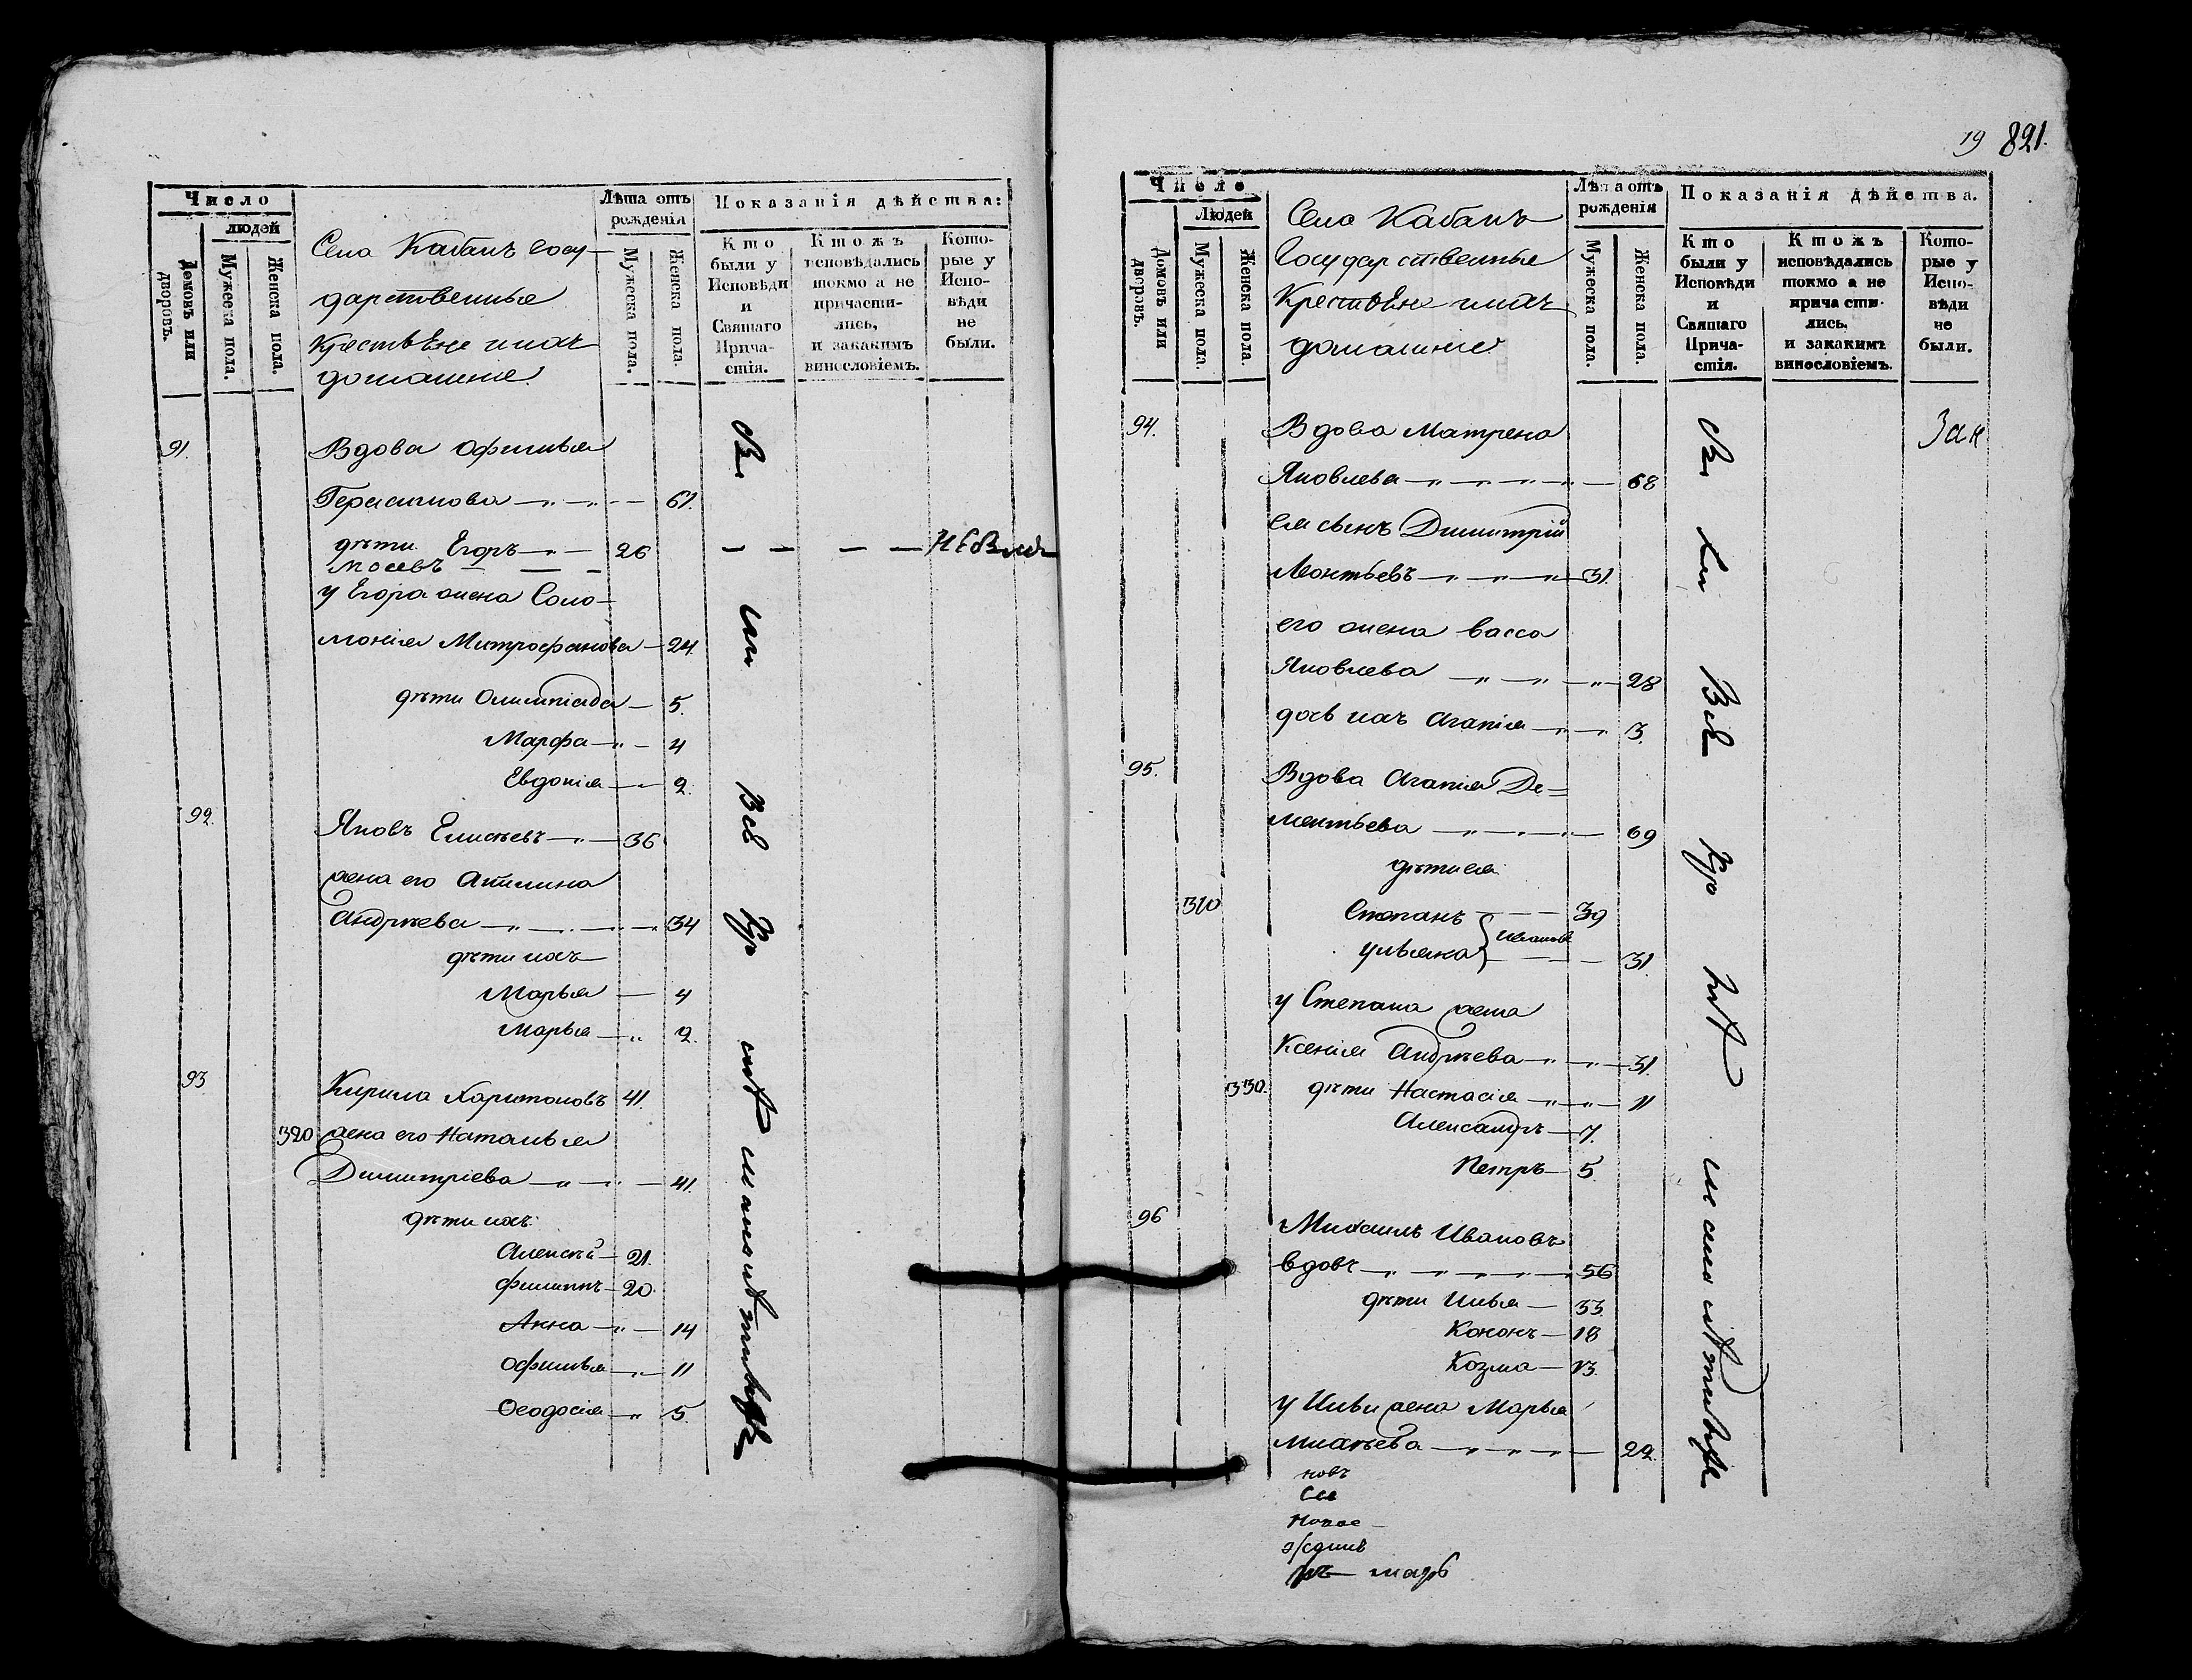 Число
людей
Домовъ или дворовъ.
Мужеска пола.
Женска пола.
Села Кабанъ Госу-
дарственные
Крестьяне и ихъ
домашние.
Лѣта отъ рожденія
Мужеска пола.
Женска пола.
Показанія дѣйства:
Кто были у Исповѣди и Святаго Прича-стія.
Ктожъ исповѣдались токмо а не причасти-лись, и закакимъ винословіемъ.
Кото-рые у Испо-вѣди не были.
91. Вдова Офимья
Герасимова 61.
дѣти Егоръ 26
у Егора жена Соло-
монія Митрофанова 24.
дѣти Олимпіада 5.
Марфа 4
Евдокія 2.
92. Яковъ Елисѣевъ 36
жена его Акилина
Андрѣева 34
дѣти ихъ
Марья 4
Марья 2.
93. Кирила Харитоновъ 41.
320 жена его Наталья
Димитріева 41.
дѣти ихъ
Алексѣй 21.
Филиппъ 20.
Анна 14
Офимья 11
Ѳеодосія 5.
19 821.
Число
Людей
Домовъ или дворовъ.
Мужеска пола.
Женска пола.
Села Кабанъ
Государственные
Крестьяне и ихъ
домашние.
Лѣта отъ рожденія
Мужеска пола.
Женска пола.
Показанія дѣйства.
Кто были у Исповѣди и Святаго Прича-стія.
Ктожъ исповѣдались токмо а не прича сти-лись, и закакимъ винословіемъ.
Кото-рые у Испо-вѣди не были.
94. Вдова Матрена
Яковлева 68
ея сынъ Димитрій
Леонтьевъ 31.
его жена Васса
Яковлева 28
дочь ихъ Агапія 3.
95. Вдова Агапія Де=
ментьева 69
дѣти ея
310 Степанъ 39
Ульяна 31.
у Степана жена
Ксенія Андрѣева 31.
330. дѣти Настасія 11
Александръ 7.
Петръ 5.
96 Михаилъ Ивановъ
вдовъ 56
дѣти Илья 33.
Кононъ 18
Козма 13.
у Ильи жена Марья
Михѣева 29.